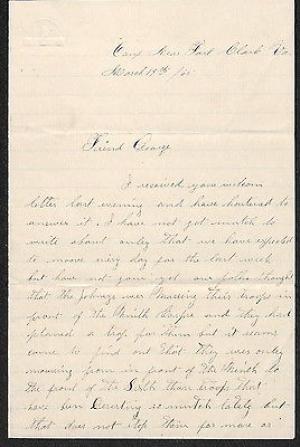 Camp Near Fort Clark Va
March 19th /65
Friend George
I received your welcom
letter last evening and have hastened to
answer it. I have not got mutch to
write about only that we have expected
to moove every day for the last week
but have not gone yet our folks thought
that the Johneys wer Massing their troops in
front of the Ninth Corps and they had
planed a trap for them but it seams
come to find out that they wer only
mooving from in front of the Ninth to
the front of the Sixth thare troops that
have ben Deserting so mutch lately but
that does not stop them for more or